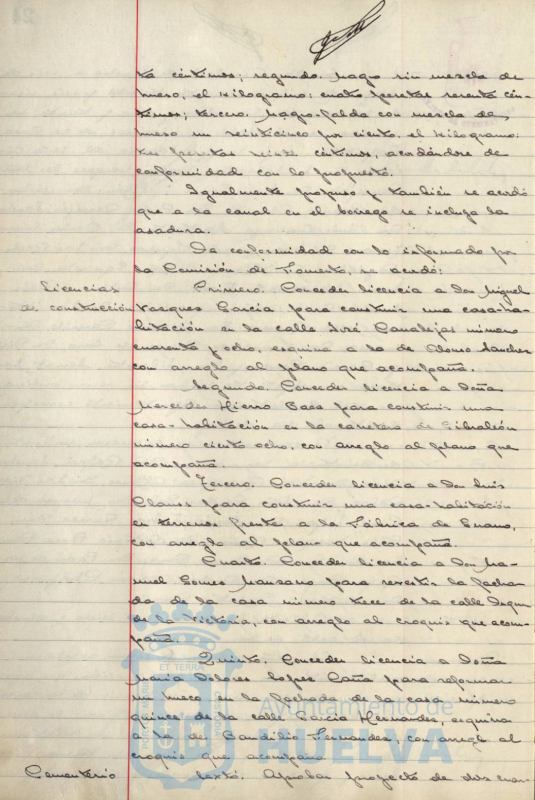 ta céntimos; segundo. Magro sin mezcla de
hueso, el Kilogramo: cuatro pesetas sesenta cén-
timos; tercero. Magro-falda con mezcla de
hueso un veinticinco por ciento, el Kilogramo:
tres pesetas veinte céntimos, acordándose de
conformidad con lo propuesto.
Igualmente propuso y también se acordó
que a la canal en el borrego se incluya la
asadura.
De conformidad con lo informado por
la Comisión de Fomento, se acordó:
Licencias
de construcción
Primero. Conceder licencia a Don Miguel
Vazques García para construir una casa-ha-
bitación en la calle José Canalejas número
cuarenta y ocho, esquina a la de Alonso Sanchez
con arreglo al plano que acompaña.
Segundo. Conceder licencia a Doña
Mercedes Hierro Baea para construir una
casa-habitación en la carretera de Gibraleón
número ciento ocho, con arreglo al plano que
acompaña.
Tercero. Conceder licencia a Don Luis
Clauss para construir una casa-habitación
en terrenos frente a la Fábrica de Guano,
con arreglo al plano que acompaña.
Cuarto. Conceder licencia a Don Ma-
nuel Gomes Manzano para revestir la facha-
da de la casa número trece de la calle Duque
de la Victoria, con arreglo al croquis que acom-
paña.
Quinto. Conceder licencia a Doña
María Dolores Lopes Caña para reformar
un hueco a la fachada de la casa número
quince de la calle García Hernandez, esquina
a la de Bandilio Fernandez, con arreglo al
croquis que acompaña
Cementerio
Sexto. Aprobar proyecto de dos cuar-
Ayuntamiento de
HUELVA